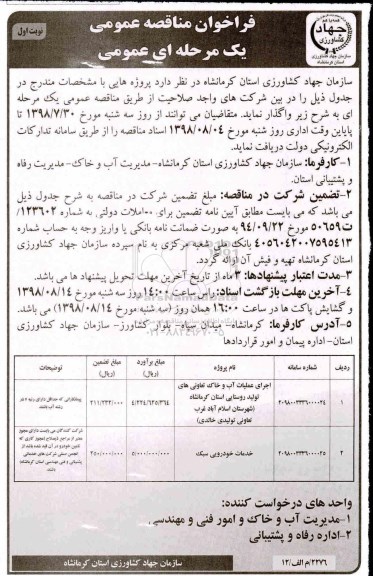 فراخوان مناقصه عمومی
یک مرحله ای عمومی
نوبت اول
جهاد
کشاورزی
سازمان جهاد کشاورزی
استان کرمانشاه
سازمان جهاد کشاورزی استان کرمانشاه در نظر دارد پروژه هایی با مشخصات مندرج در
جدول ذیل را در بین شرکت های واجد صلاحیت از طریق مناقصه عمومی یک مرحله
ای به شرح زیر واگذار نماید. متقاضیان می توانند از روز سه شنبه مورخ ۱۳۹۸/۷/۳۰ تا
پایان وقت اداری روز شنبه مورخ ۱۳۹۸/۰۸/۰۴ اسناد مناقصه را از طریق سامانه تدارکات
الکترونیکی دولت دریافت نماید.
۱-کارفرما: سازمان جهاد کشاورزی استان کرمانشاه-مدیریت آب و خاک-مدیریت رفاه
و پشتیبانی استان.
۲-تضمین شرکت در مناقصه: مبلغ تضمین شرکت در مناقصه به شرح جدول ذیل
می باشد که می بایست مطابق آیین نامه تضمین برای معاملات دولتی به شماره ۱۲۳۴۰۲/
ت۵۰۶۵۹ مورخ ۹۴/۰۹/۲۲ به صورت ضمانت نامه بانکی یا واریز وجه به حساب شماره
۴۰۵۶۰۴۲۰۰۷۵۹۵۴۱۳ بانک ملی شعبه مرکزی به نام سپرده سازمان جهاد کشاورزی
استان کرمانشاه تهیه و فیش آن ارائه گردد.
۳-مدت اعتبار پیشنهادها: ۳ ماه از تاریخ آخرین مهلت تحویل پیشنهاد ها می باشد.
۴-آخرین مهلت بازگشت اسناد: راس ساعت ۱۴:۰۰ روز سه شنبه مورخ ۱۳۹۸/۰۸/۱۴
و گشایش پاکت ها در ساعت ۱۶:۰۰ همان روز (سه شنبه مورخ ۱۳۹۸/۰۸/۱۴) می باشد.
۵-آدرس کارفرما: کرمانشاه- میدان سپاه- بلوار کشاورز- سازمان جهاد کشاورزی
استان-اداره پیمان و امور قراردادها
ردیف شماره سامانه نام پروژه مبلغ برآورد (ریال) مبلغ تضمین (ریال) توضیحات
۱ اجرای عملیات آب و خاک تعاونی های
تولید روستایی استان کرمانشاه
(شهرستان اسلام آباد غرب
تعاونی تولیدی خالدی) ۴/۲۲۴/۶۲۵/۳۶۴ ۲۱۱/۲۳۲/۰۰۰
۲ خدمات خودرویی سبک ۵/۰۰۰/۰۰۰/۰۰۰ ۲۵۰/۰۰۰/۰۰۰
واحد های درخواست کننده:
۱-مدیریت آب و خاک و امور فنی و مهندسی
۲-اداره رفاه و پشتیبانی
۲۲۷۶/م الف/۱۲
سازمان جهاد کشاورزی استان کرمانشاه